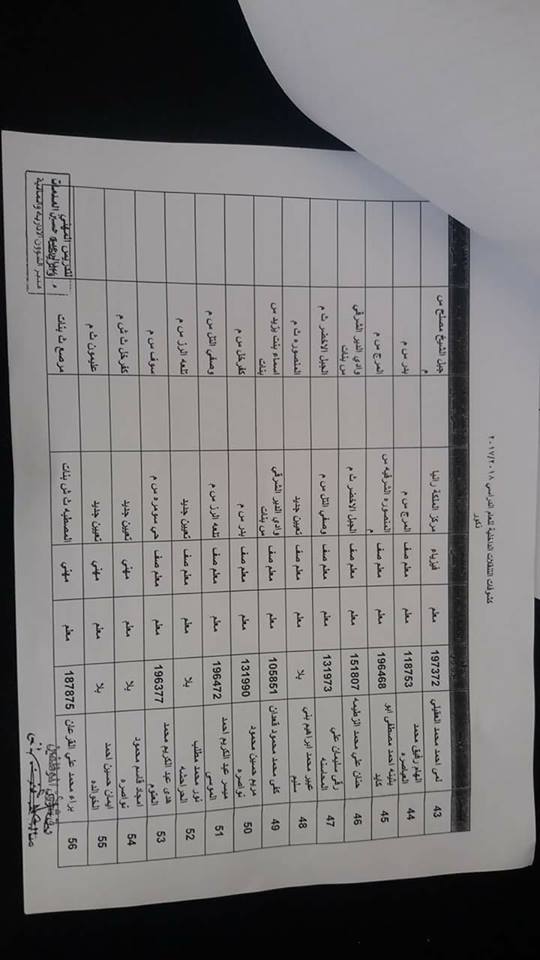 كشوفات التنقلات الداخلية للعام الدراسي ٢٠١٧/٢٠١٨
ذكور
43 نهى احمد محمد العقيلي 197372 معلم فيزياء مركز الملكة رانيا جبل الشيخ مصلح س م
44 الهام رفيق محمد العياصره 118753 معلم معلم صف المرج س م بدر س م
45 بثينه احمد مصطفى ابو 196468 معلم معلم صف المنصوره الشرقيه س م المرج س م
46 حنان علي محمد 151807 معلم معلم صف الجبل الاخضر ث م وادي الدير الشرقي س بنات
47 سليمان علي 131973 معلم معلم صف وصفي التل س م الجبل الاخضر ث م
48 عبير محمد ابراهيم بني سليم بلا معلم معلم صف تعيين جديد المنصوره ث م
49 كفى محمد محمود قعدان 105851 معلم معلم صف وادي الدير الشرقي س بنات اسماء بنت يزيد س بنات
50 مريم حسين محمود نواصره 131990 معلم معلم صف بدر س م كفرخل س م
51 ميسر عبد الكريم احمد الموسى 196472 معلم معلم صف تلعه الرز س م وصفي التل س م
52 نور محمد مطلب الحراحشه بلا معلم معلم صف تعيين جديد تلعه الرز س م
53 هدى عبد الكريم محمد العتوم 196377 معلم معلم صف حي سومره س م سوف س م
54 امجاد قاسم محمود نواصره بلا معلم مهني تعيين جديد كفرخل ث ش م
55 ايمان حسين احمد الخوالده بلا معلم مهني تعيين جديد عليمون ث م
56 براء محمد علي القرعان 187875 معلم مهني المصطبه ث ش بنات مرصع ث بنات
مدير الشؤون الادارية والمالية